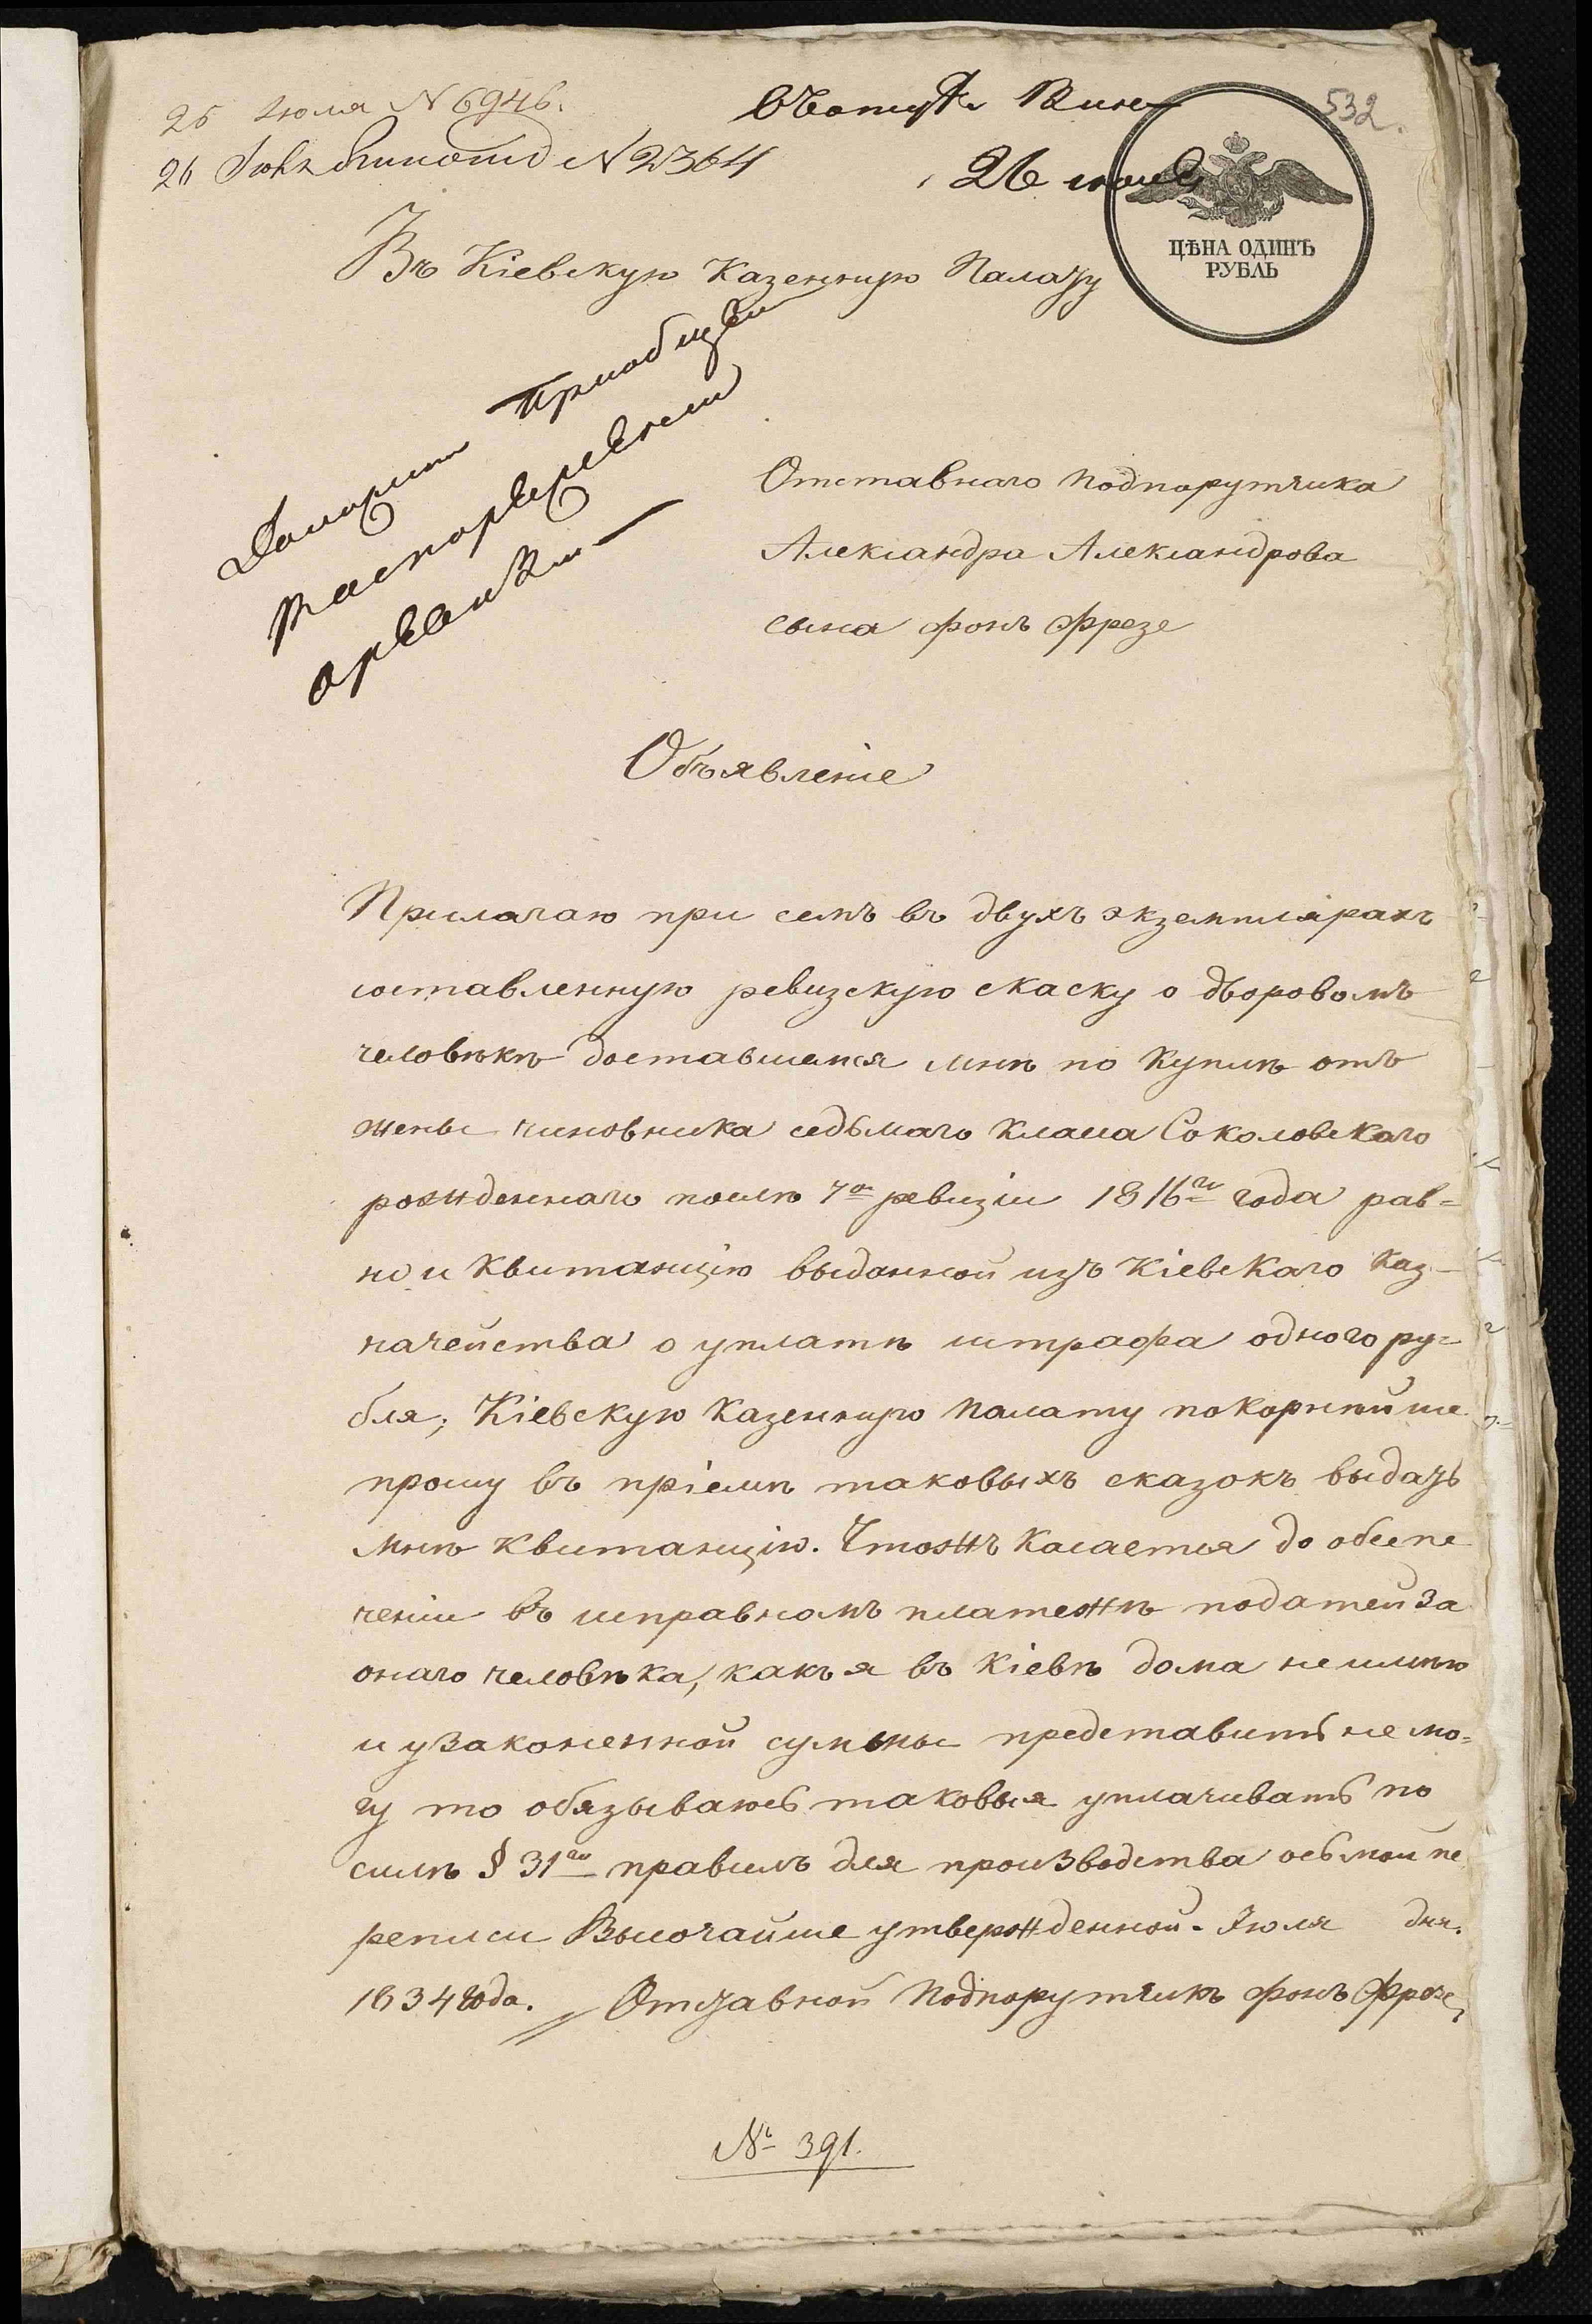 532.
25 Июля N 6946.
26 N 2364
26 июля
ЦѢНА ОДИНЪ
РУБЛЬ
Въ Кіевскую Казенную Палату
Отставнаго Подпорутчика
Александра Александрова
сына фонъ Фрезе
Объявленіе
Прилагаю при семъ въ двухъ экземплярахъ
составленную ревизскую скаску о дворовомъ
человѣкѣ доставшемся мнѣ по купли отъ
жены чиновника седьмаго класа Соколовскаго
рожденнаго послѣ 7й ревизіи 1816го года рав=
но и Квитанцію выданной изъ Кіевскаго Каз-
начейства о уплатѣ штрафа одного ру=
бля; Кіевскую Казенную Палату покорнѣйше
прошу въ пріемѣ таковыхъ сказокъ выдать
мнѣ Квитанцію. Чтожъ касается до обезпе
ченіи въ исправномъ платежѣ податей за
онаго человѣка, какъ я въ Кіевѣ дома не имѣю
и узаконенной суммы представить не мо=
гу то обязываюсь таковыя уплачивать по
силѣ § 31го правилъ для производства осьмой пе
реписи Высочайше утвержденной. Іюля дня.
1834 года. Отставной Подпорутчикъ фонъ Фрезе
№ 391.